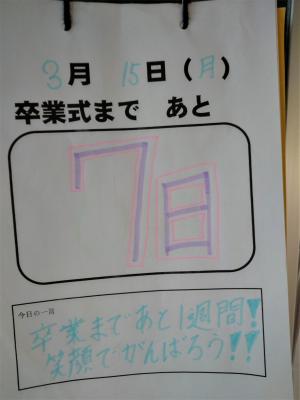 3月 15日(月)
卒業式まで あと
7日
今日の一言
卒業まであと1週間!
笑顔でがんばろう!!